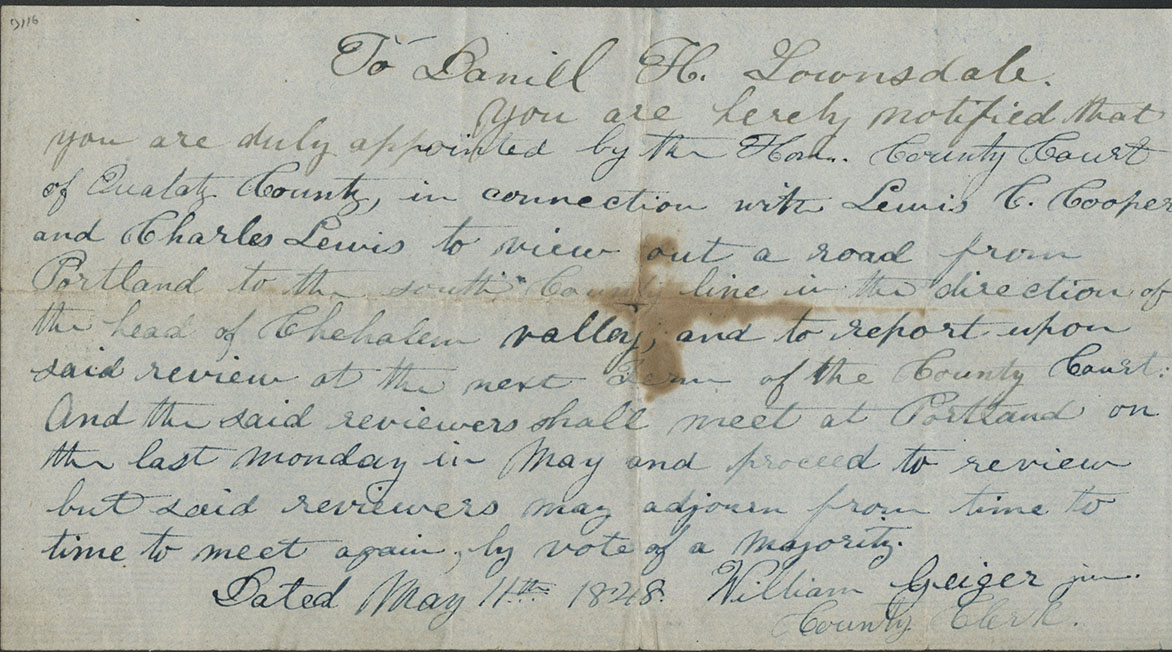 D116
To Danill H. Lownsdale.
You are herely notified that
you are duly appointed by the Hon. County Court
of Tualatz County, in connection with Lewis C. Cooper
and Charles Lewis to view out a road from
Portland to the south County line in the direction of
the head of Chehalem valley, and to report upon
said review at the next Term of the County Court:
And the said reviewers shall meet at Portland on
the last monday in May and proceed to review
but said reviewers may adjourn from time to
time to meet again, by vote of a majority.
Dated May 11th 1848. William Geiger jun.
County Clerk.